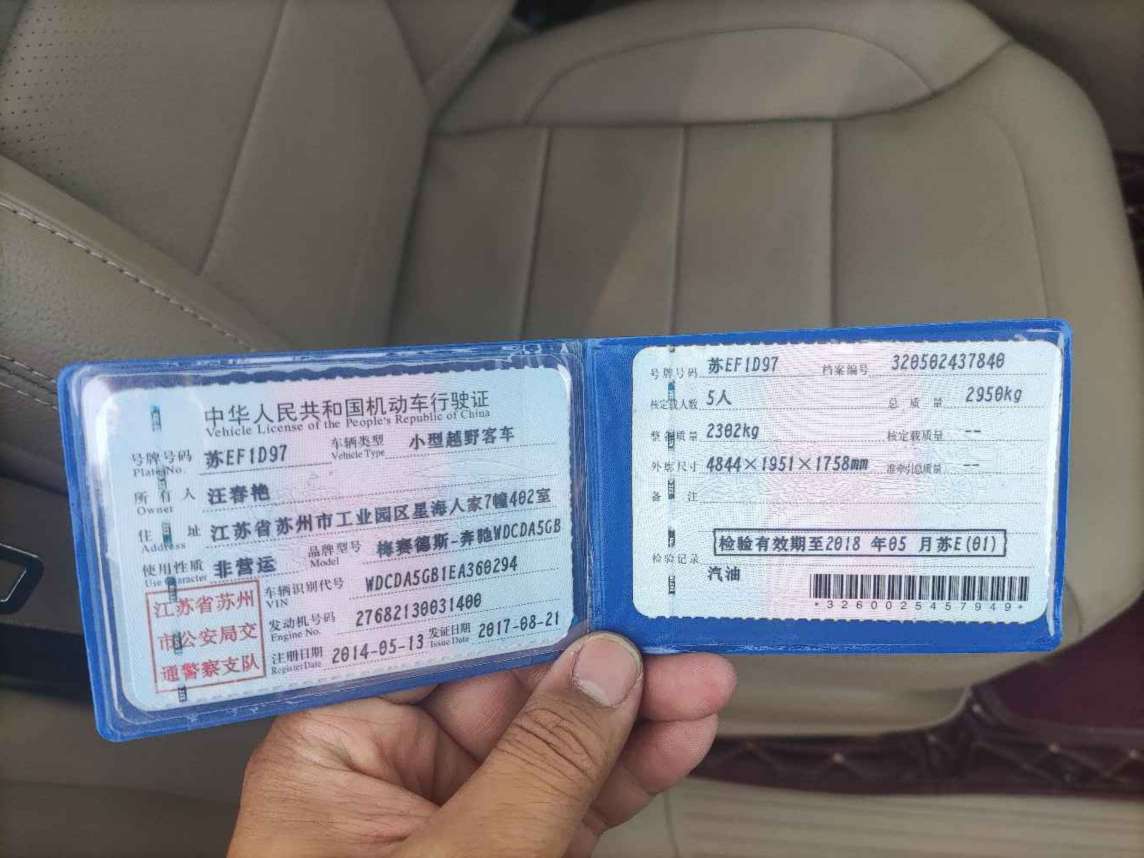 中华人民共和国机动车行驶证
Vehicle License of the People's Republic of China
号牌号码 苏EF1D97 车辆类型 小型越野客车
Plate No. Vehicle Type
所有人 汪春艳
Owner
住址 江苏省苏州市工业园区星海人家7幢402室
Address
使用性质 非营运 品牌型号 梅赛德斯-奔驰WDCDA5GB
Use Character Model
江苏省苏州
市公安局交
通警察支队
车辆识别代号 WDCDA5GB1EA360294
VIN
发动机号码 27682130031400
Engine No.
注册日期 2014-05-13 发证日期 2017-08-21
Register Date Issue Date
号牌号码 苏EF1D97 档案编号 320502437840
核定载人数 5人 总质量 2950kg
整备质量 2302kg 核定载质量 --
外廓尺寸 4844×1951×1758mm 准牵引总质量 --
备注
检验有效期至2018年05月苏E(01)
检验记录
汽油
*3260025457949*